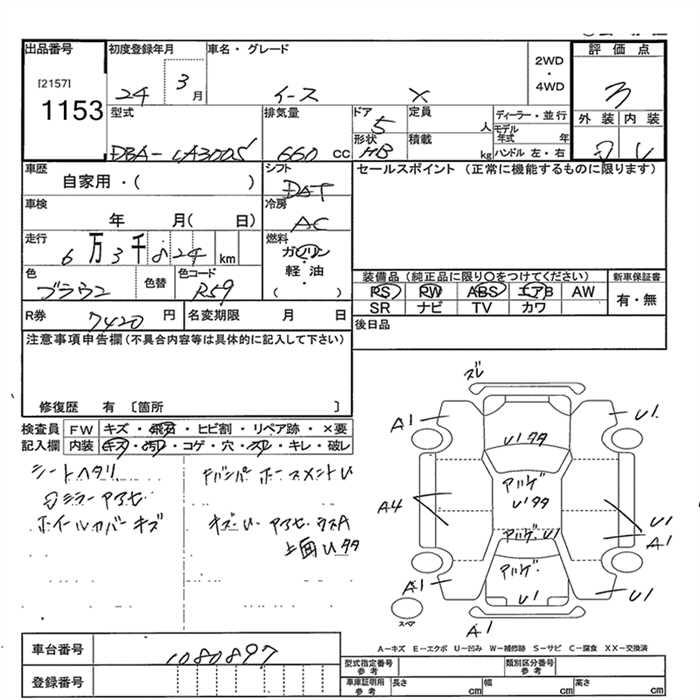 出品番号 初度登録年月 車名・グレード 2WD・4WD 評価点
[2157]
1153
24 3月 イース X 3
型式 排気量 ドア 定員 ディーラー・並行 外装 内装
DBA-LA300S 660 cc 5 人 モデル年式 年
形状 積載 kg ハンドル 左・右
HB
車歴 シフト セールスポイント (正常に機能するものに限ります)
自家用・( ) DAT
車検 冷房
年 月( 日) AC
走行 燃料
6万3千 824 km ガソリン
軽油
( )
色 色替 色コード 装備品(純正品に限り○をつけてください) 新車保証書
ブラウン R59 PS PW ABS エアB AW 有・無
SR ナビ TV カワ
R券 7420 円 名変期限 月 日 後日品
注意事項申告欄(不具合内容等は具体的に記入して下さい)
修復歴 有 〔箇所 〕
検査員 FW キズ・飛石・ヒビ割・リペア跡・×要
記入欄 内装 キズ・汚レ・コゲ・穴・スレ・キレ・破レ
シートヘタリ
ホイールカバーキズ
ズレ
A1 U1
A4 U1
A1
A1 U1
A1
スペア
A-キズ E-エクボ U-凹み W-補修跡 S-サビ C-腐食 XX-交換済
車台番号 1080897
登録番号
型式指定番号 参考 類別区分番号 参考
車庫証明用 参考 長さ cm 幅 cm 高さ cm